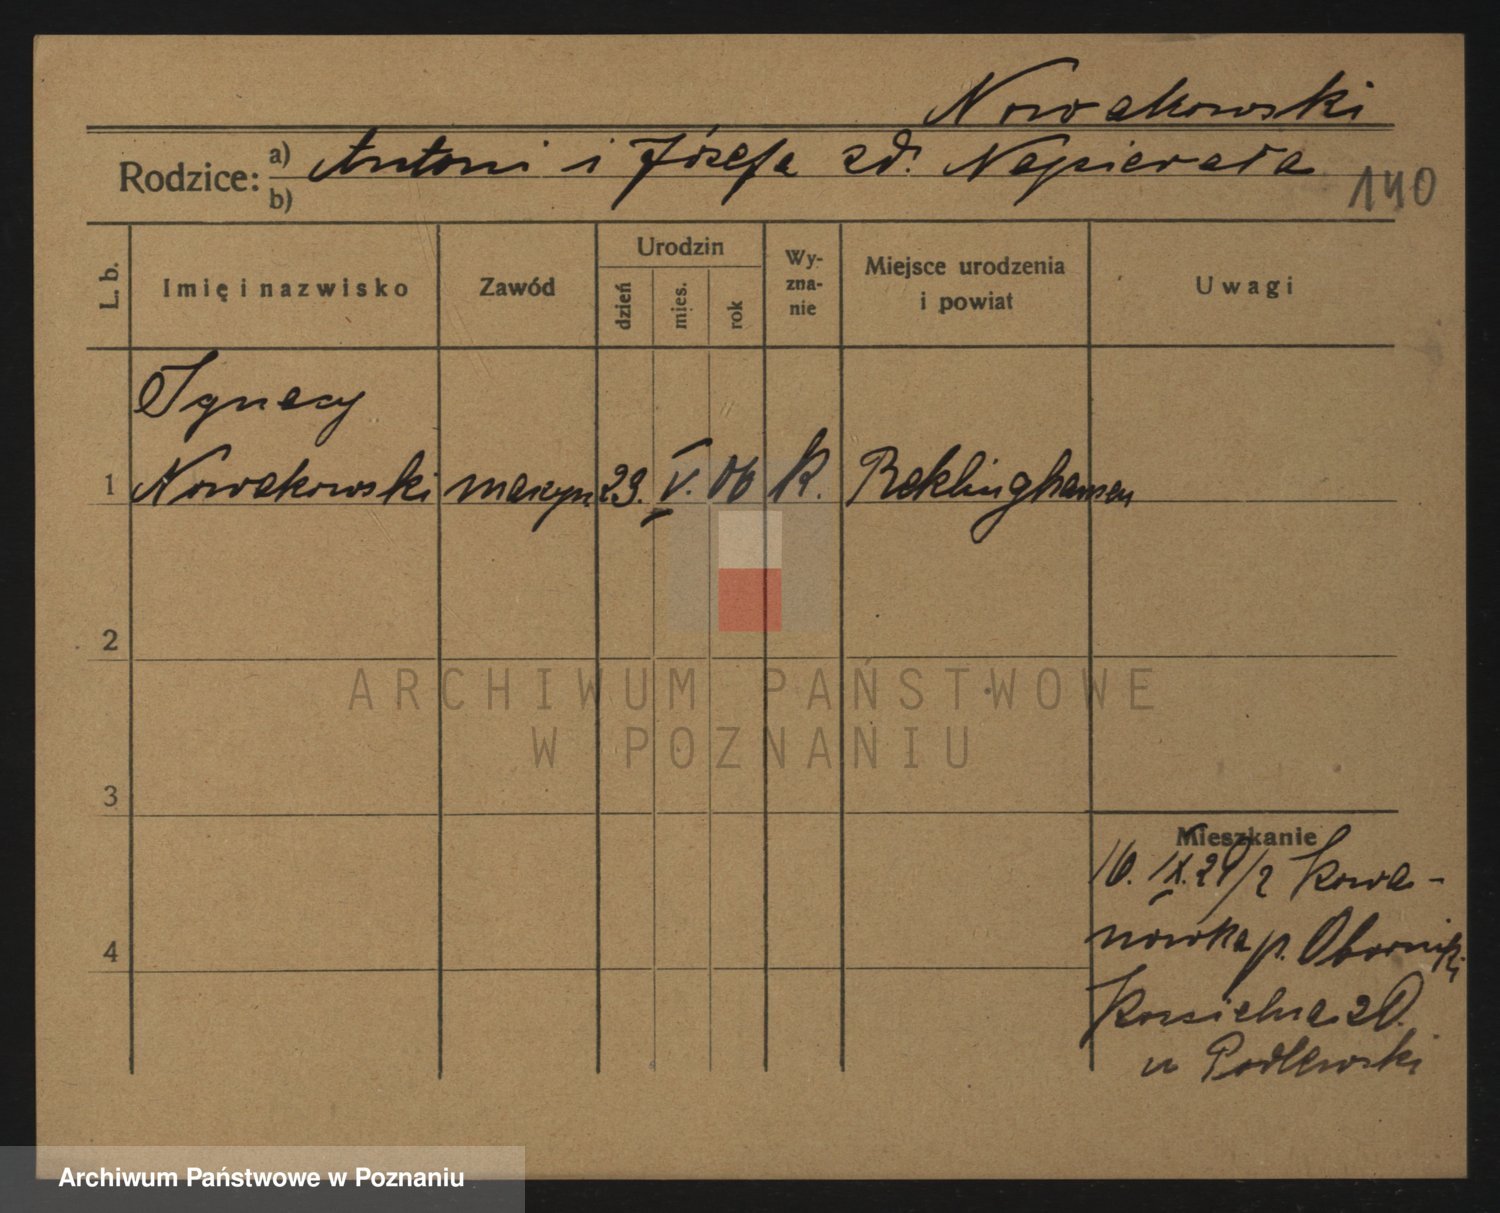 Nowakowski
Rodzice: a) Antoni i Józefa zd. Napierała
b)
140
L. b.
Imię i nazwisko
Zawód
Urodzin
dzień
mies.
rok
Wy-
zna-
nie
Miejsce urodzenia
i powiat
Uwagi
Ignacy
1 Nowakowski maszyn. 29. V. 06 K. Reklinghausen
2
3
4
Mieszkanie
16. IX. 21/2 Kowa-
nówka p. Oborniki
Kościelna 20.
u Podlewski
ARCHIWUM PAŃSTWOWE
W POZNANIU
Archiwum Państwowe w Poznaniu